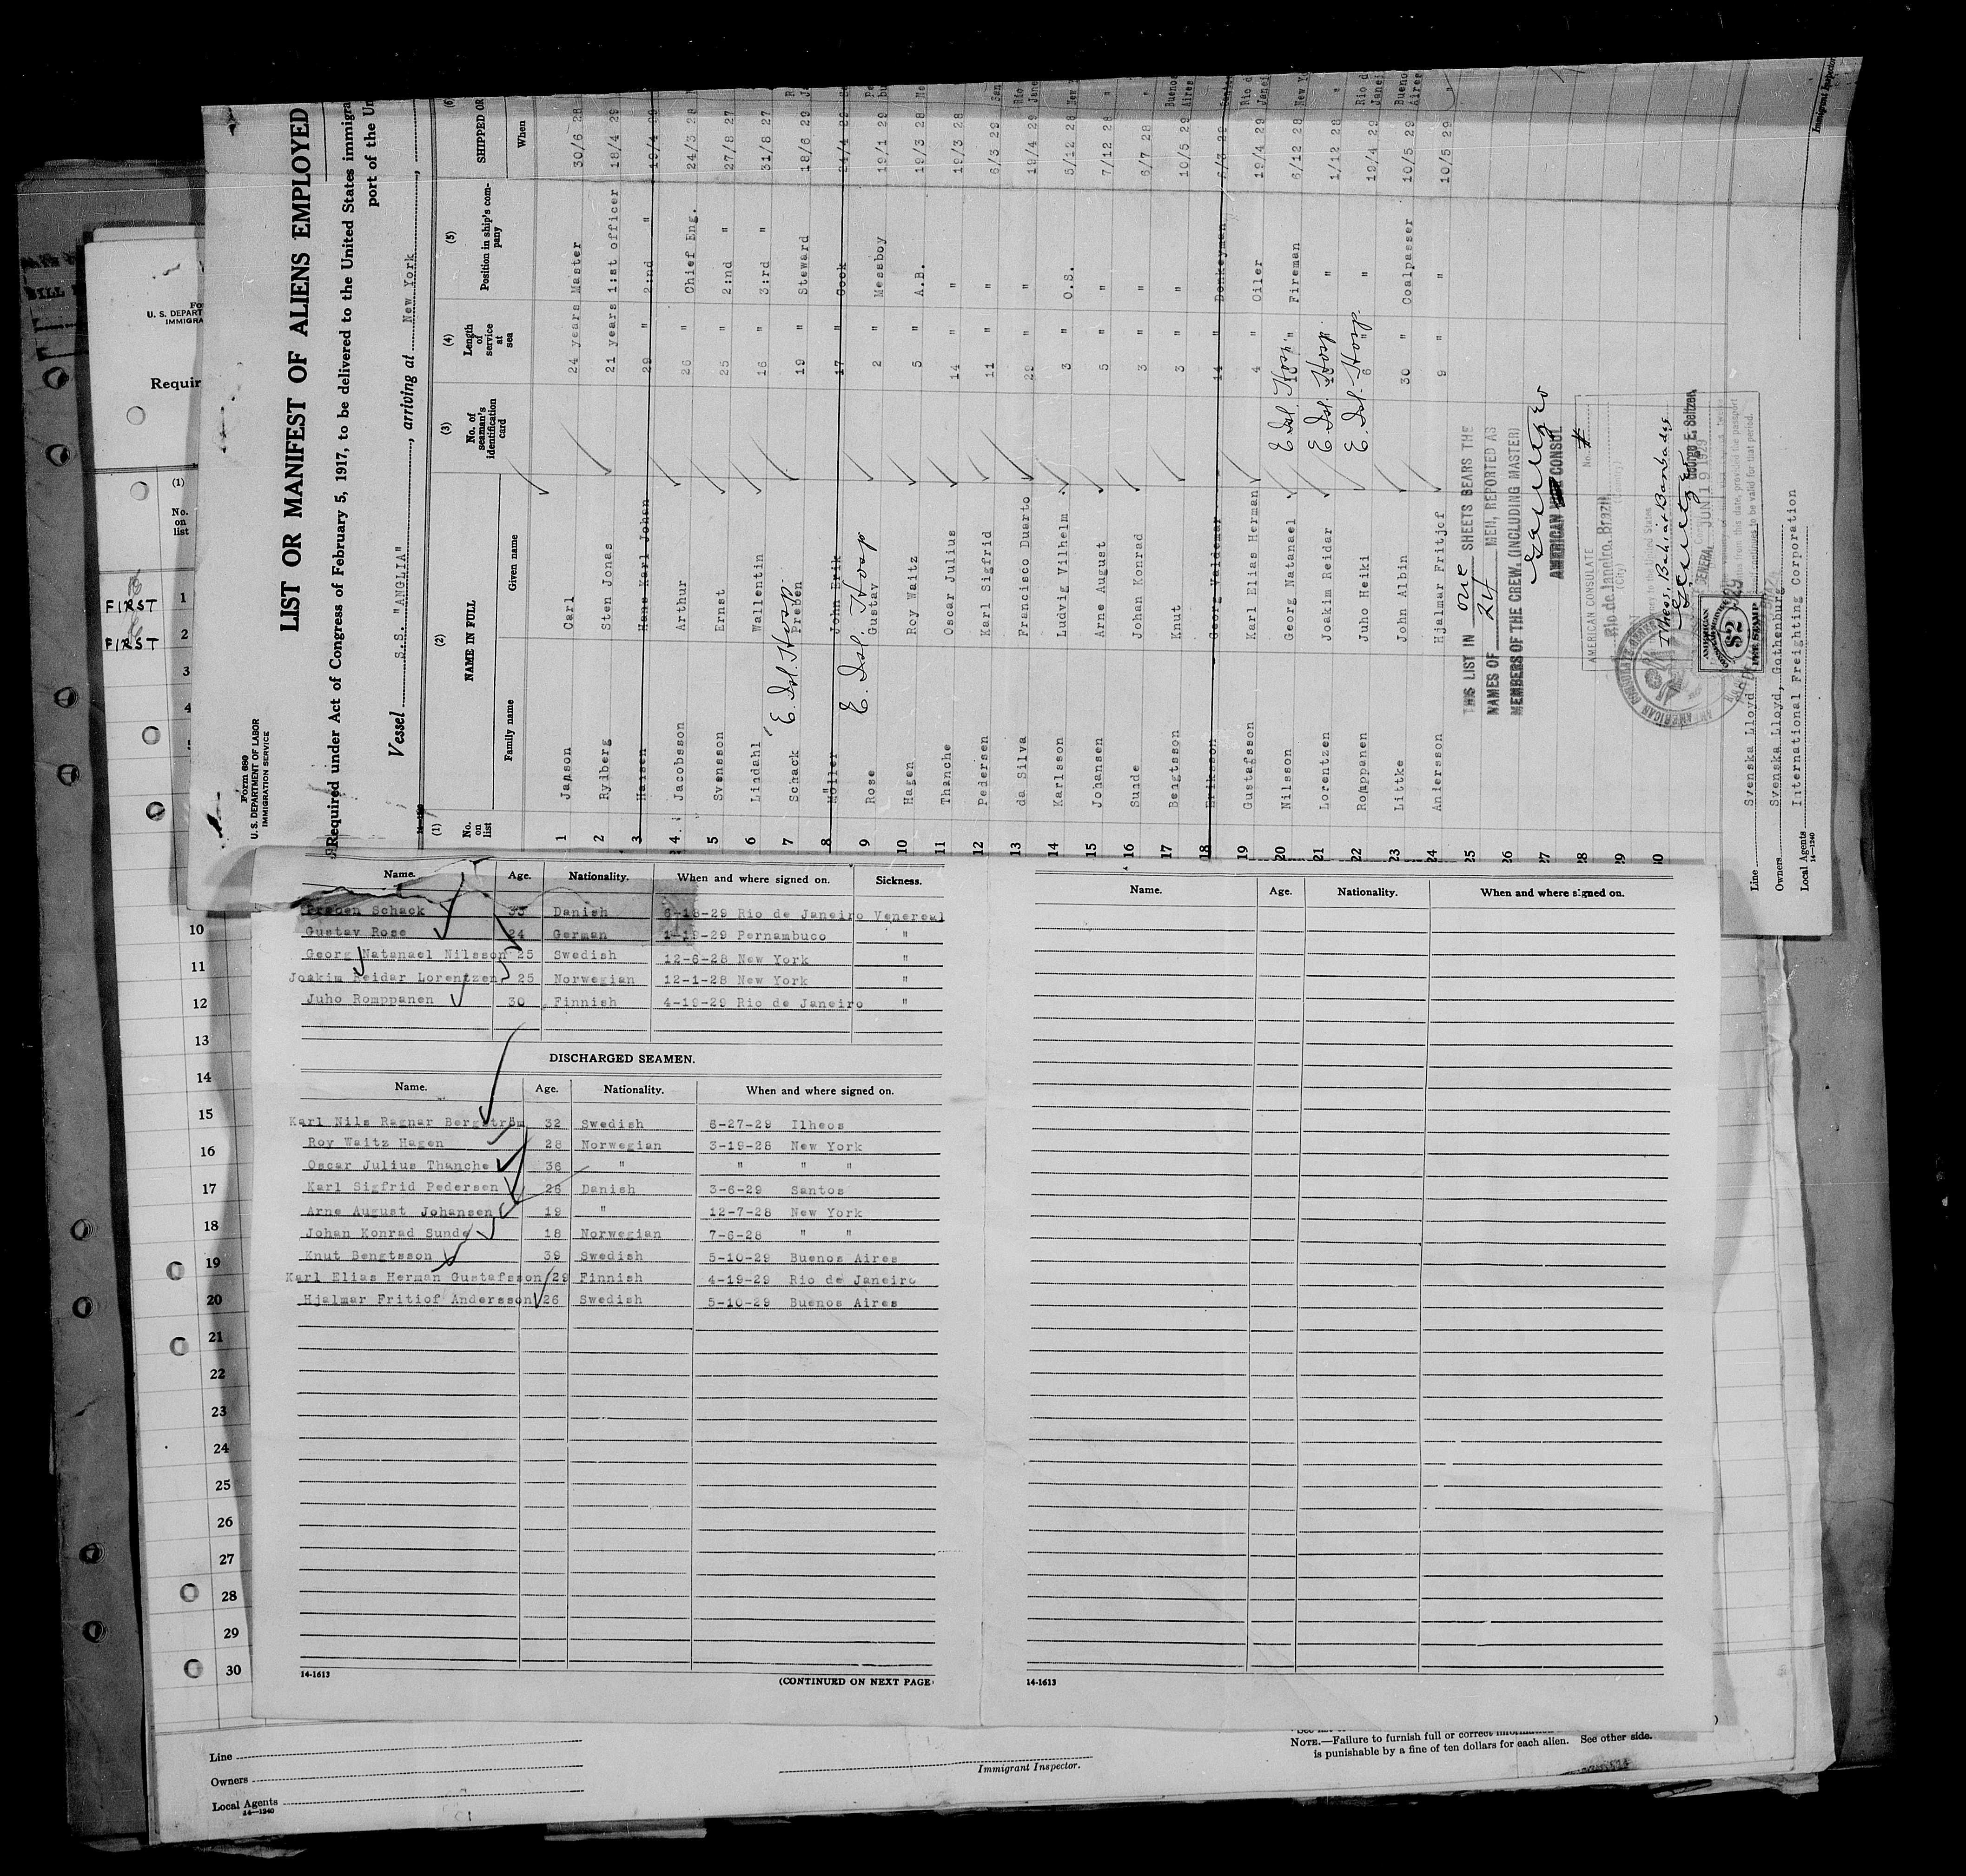 Form 690
U. S. DEPARTMENT OF LABOR
IMMIGRATION SERVICE
LIST OR MANIFEST OF ALIENS EMPLOYED
Required under Act of Congress of February 5, 1917, to be delivered to the United States immigra
port of the Un
Vessel S.S. "ANGLIA", arriving at New York
(1) (2) (3) (4) (5) (6)
No. on list NAME IN FULL No. of seaman's identification card Length of service at sea Position in ship's company SHIPPED OR
Family name Given name When
1 Janson Carl 24 years Master 30/6 28
2 Rydberg Sten Jonas 21 years 1:st officer 18/4 29
3 Hansen Hans Karl Johan 29 " 2:nd " 19/4 29
4 Jacobsson Arthur 26 " Chief Eng. 24/3 28
5 Svensson Ernst 25 " 2:nd " 27/8 27
6 Lindahl Wallentin 16 " 3:rd " 31/8 27
7 Schack E. Isl. Hosp. Preben 19 " Steward 18/6 29
8 Möller John Erik 17 " Cock 24/4 29
9 Rose E. Isl. Hosp Gustav 2 " Messboy 19/1 29
10 Hagen Roy Waitz 5 " A.B. 19/3 28
11 Thanche Oscar Julius 14 " " 19/3 28
12 Pedersen Karl Sigfrid 11 " " 6/3 29
13 da Silva Francisco Duarto " " 19/4 29
14 Karlsson Ludvig Vilhelm 3 " O.S. 5/12 28
15 Johansen Arne August 5 " " 7/12 28
16 Sunde Johan Konrad 3 " " 6/7 28
17 Bengtsson Knut 3 " " 10/5 29 Buenos Aires
18 Eriksson Georg Valdemar 14 " Donkeyman 6/3 29
19 Gustafsson Karl Elias Herman 4 " Oiler 19/4 29
20 Nilsson Georg Natanael E. Isl. Hosp. 10 " Fireman 6/12 28
21 Lorentzen Joakim Reidar E. Isl. Hosp. " 1/12 28
22 Romppanen Juho Heiki E. Isl. Hosp. 6 " " 19/4 29
23 Littke John Albin 30 " Coalpasser 10/5 29
24 Andersson Hjalmar Fritjof 9 " " 10/5 29
25
26
27
28
29
30
THIS LIST IN one SHEETS BEARS THE
NAMES OF 24 MEN, REPORTED AS
MEMBERS OF THE CREW. (INCLUDING MASTER)
AMERICAN CONSUL
AMERICAN CONSULATE
No.
Rio de Janeiro, Brazil
(City) (Country)
Ilheos, Bahia & Barbados
George E. Seltzer
JUN 19 1929
AMERICAN
$2
FEE STAMP
Line Svenska Lloyd
Owners Svenska Lloyd, Gothenburg
Local Agents International Freighting Corporation
14-1240
Immigrant Inspector
U. S. DEPART
IMMIGRA
Requir
(1)
No. on list
FIRST 1
FIRST 2
3
4
Name. Age. Nationality. When and where signed on. Sickness.
Preben Schack 33 Danish 6-18-29 Rio de Janeiro Venereal
Gustav Rose 24 German 1-19-29 Pernambuco "
Georg Natanael Nilsson 25 Swedish 12-6-28 New York "
Joakim Reidar Lorentzen 25 Norwegian 12-1-28 New York "
Juho Romppanen 30 Finnish 4-19-29 Rio de Janeiro "
DISCHARGED SEAMEN.
Name. Age. Nationality. When and where signed on.
Karl Nils Ragnar Bergström 32 Swedish 6-27-29 Ilheos
Roy Waitz Hagen 28 Norwegian 3-19-28 New York
Oscar Julius Thanche 36 " " " "
Karl Sigfrid Pedersen 26 Danish 3-6-29 Santos
Arne August Johansen 19 " 12-7-28 New York
Johan Konrad Sunde 18 Norwegian 7-6-28 " "
Knut Bengtsson 39 Swedish 5-10-29 Buenos Aires
Karl Elias Herman Gustafsson 29 Finnish 4-19-29 Rio de Janeiro
Hjalmar Fritiof Andersson 26 Swedish 5-10-29 Buenos Aires
14-1613 (CONTINUED ON NEXT PAGE
Name. Age. Nationality. When and where signed on.
14-1613
10
11
12
13
14
15
16
17
18
19
20
21
22
23
24
25
26
27
28
29
30
Line
Owners
Local Agents
14-1240
Immigrant Inspector.
NOTE.—Failure to furnish full or correct information
is punishable by a fine of ten dollars for each alien. See other side.